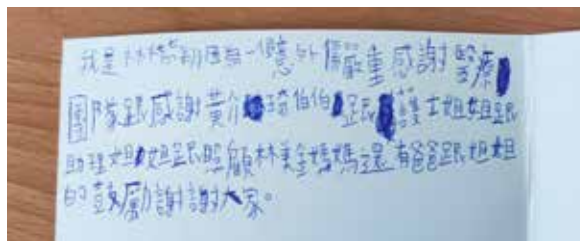 我是林 一個意外傷嚴重感謝醫療
團隊跟感謝黃介琦伯伯跟護士姐姐跟
助理姐姐跟照顧林美金媽媽還有爸爸跟姐姐
的鼓勵謝謝大家。